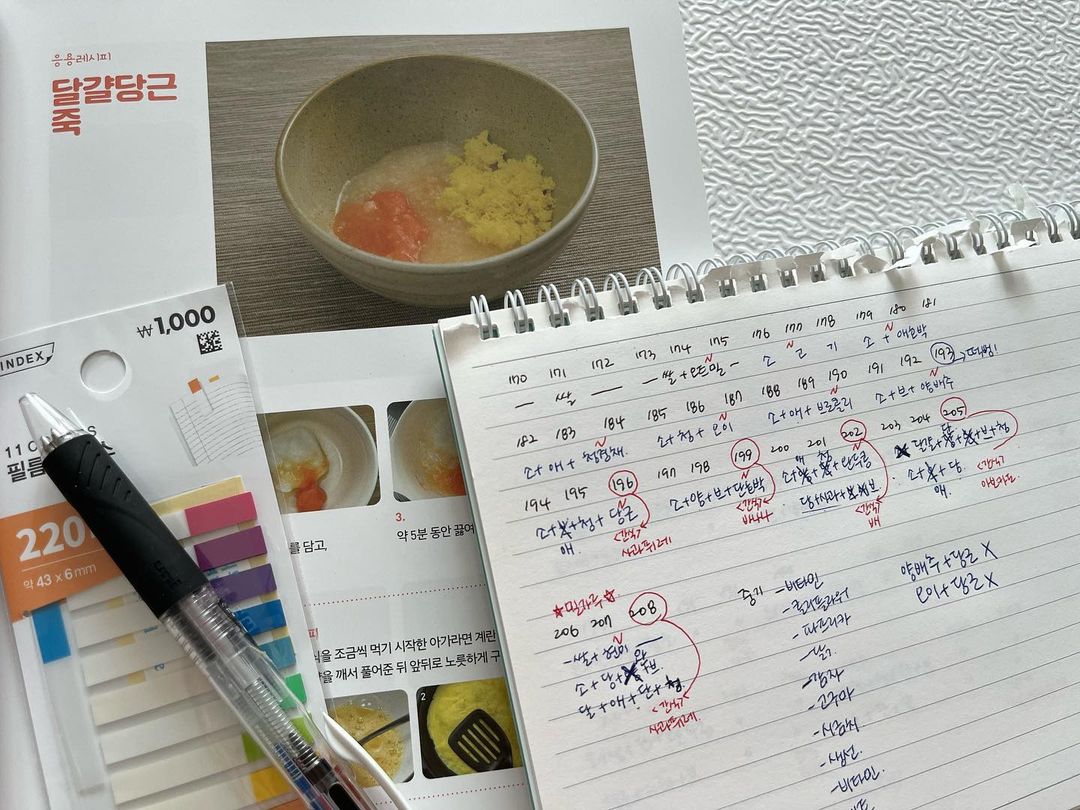 응용레시피
달걀당근
죽
₩1,000
INDEX
필름
220
약 43 x 6 mm
를 담고,
3.
약 5분 동안 끓여
피
식을 조금씩 먹기 시작한 아가라면 계란
을 깨서 풀어준 뒤 앞뒤로 노릇하게 구
2
170 171 172 173 174 175 176 177 178 179 180 181
- 쌀 - - 쌀+오트밀 - 소고기 소+애호박
182 183 184 185 186 187 188 189 190 191 192 193 → 떡뻥!
소+애+청경채 소+청+오이 소+애+브로콜리 소+브+양배추
194 195 196 197 198 199 200 201 202 203 204 205
소+청+당근 소+양+브+단호박 완두콩
애
<간식> 사과퓨레
<간식> 바나나
<간식> 배
<간식> 아보카도
소+당.
애.
☆밀가루☆
206 207 208
-쌀+현미
달+애+단+청
<간식>
사과퓨레.
-비타민
-콜리플라워
-파프리카
-감자
-고구마
-시금치
-생선
-비타민.
양배추+당근 X
오이+당근 X